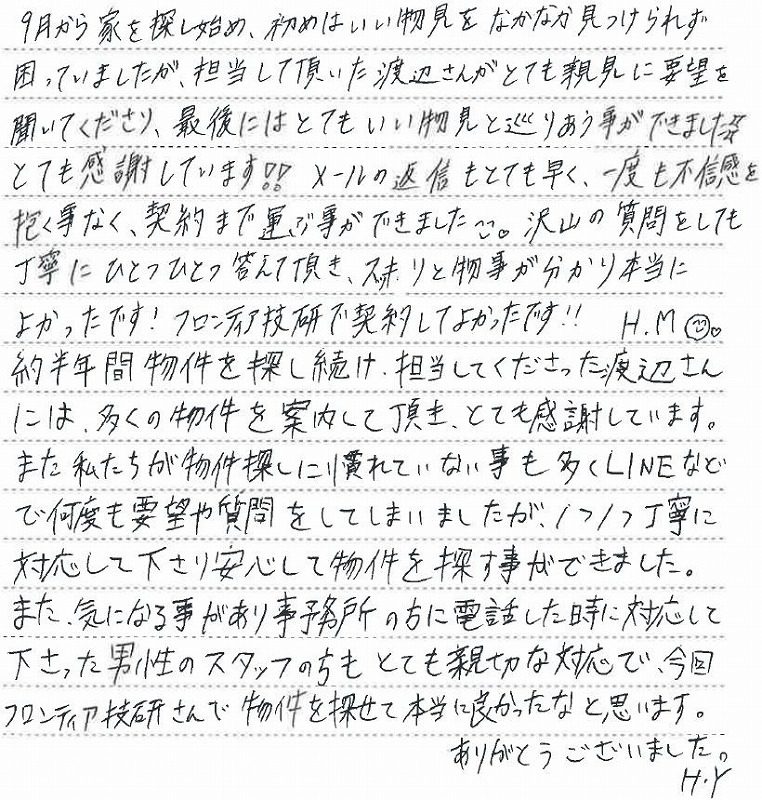 9月から家を探し始め、初めはいい物見をなかなか見つけられず
困っていましたが、担当して頂いた渡辺さんがとても親見に要望を
聞いてくださり、最後にはとてもいい物見と巡りあう事ができました☆☆
とても感謝しています!! メールの返信もとても早く、一度も不信感を
抱く事なく、契約まで運ぶ事ができました。沢山の質問をしても
丁寧にひとつひとつ答えて頂き、スッキリと物事が分かり本当に
よかったです! フロンティア技研で契約してよかったです!! H.M
約半年間物件を探し続け、担当してくださった渡辺さん
には、多くの物件を案内して頂き、とても感謝しています。
また私たちが物件探しに慣れていない事も多くLINEなど
で何度も要望や質問をしてしまいましたが、1つ1つ丁寧に
対応して下さり安心して物件を探す事ができました。
また、気になる事があり事務所の方に電話した時に対応して
下さった男性のスタッフの方もとても親切な対応で、今回
フロンティア技研さんで物件を探せて本当に良かったなと思います。
ありがとうございました。
H.Y